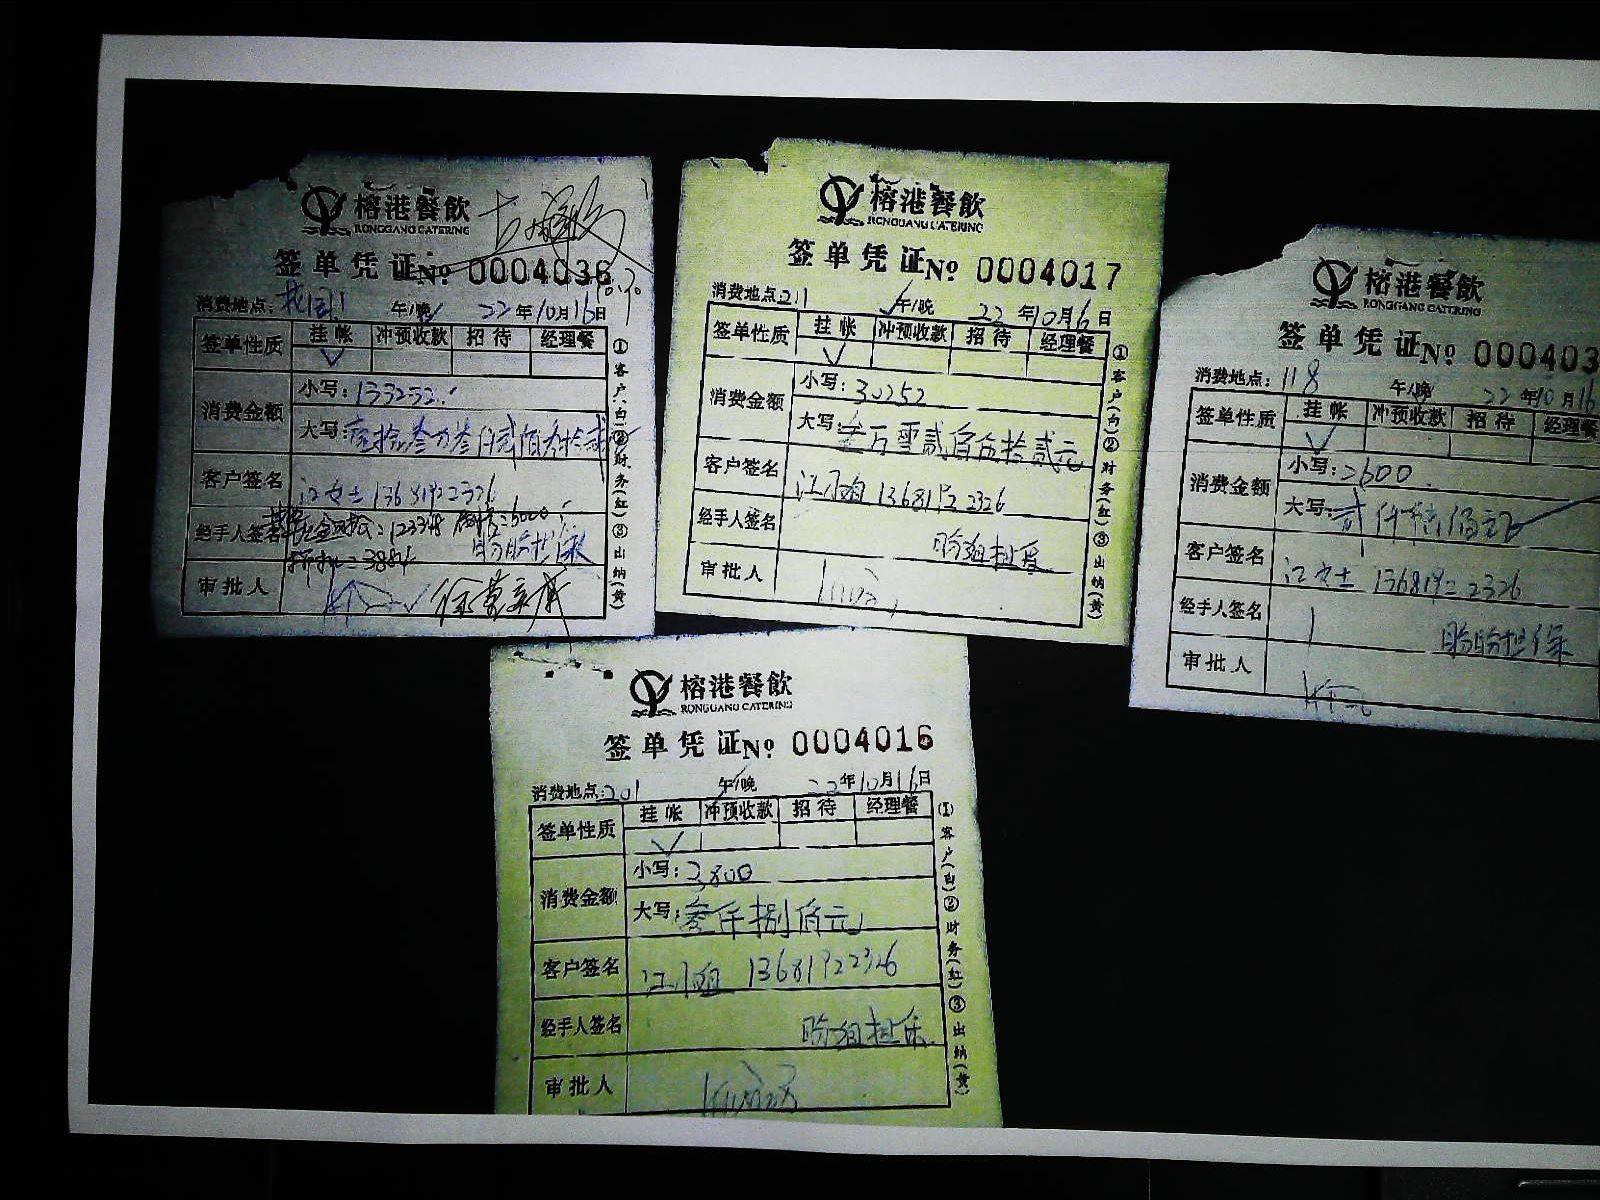 榕港餐飲
RONGGANG CATERING
签单凭证 No 0004036
消费地点: 午/晚 22年10月16日
签单性质 挂帐 冲预收款 招待 经理餐
消费金额 小写: 133232
大写: 壹拾叁万叁仟贰佰叁拾贰
客户签名 江女士 13681922326
经手人签名 盼盼担保
审批人
①客户(白)②财务(红)③出纳(黄)
榕港餐飲
RONGGANG CATERING
签单凭证 No 0004017
消费地点: 211 午/晚 22年10月16日
签单性质 挂帐 冲预收款 招待 经理餐
消费金额 小写: 30252
大写: 叁万零贰佰伍拾贰元
客户签名 江小姐 13681922326
经手人签名 盼姐担保
审批人
①客户(白)②财务(红)③出纳(黄)
榕港餐飲
RONGGANG CATERING
签单凭证 No 000403
消费地点: 118 午/晚 22年10月16
签单性质 挂帐 冲预收款 招待 经理餐
消费金额 小写: 2600
大写: 贰仟陆佰元
客户签名 江女士 13681922326
经手人签名 盼盼担保
审批人
榕港餐飲
RONGGANG CATERING
签单凭证 No 0004016
消费地点: 201 午/晚 22年10月16日
签单性质 挂帐 冲预收款 招待 经理餐
消费金额 小写: 3800
大写: 叁仟捌佰元
客户签名 江小姐 13681922326
经手人签名 盼姐担保
审批人
①客户(白)②财务(红)③出纳(黄)